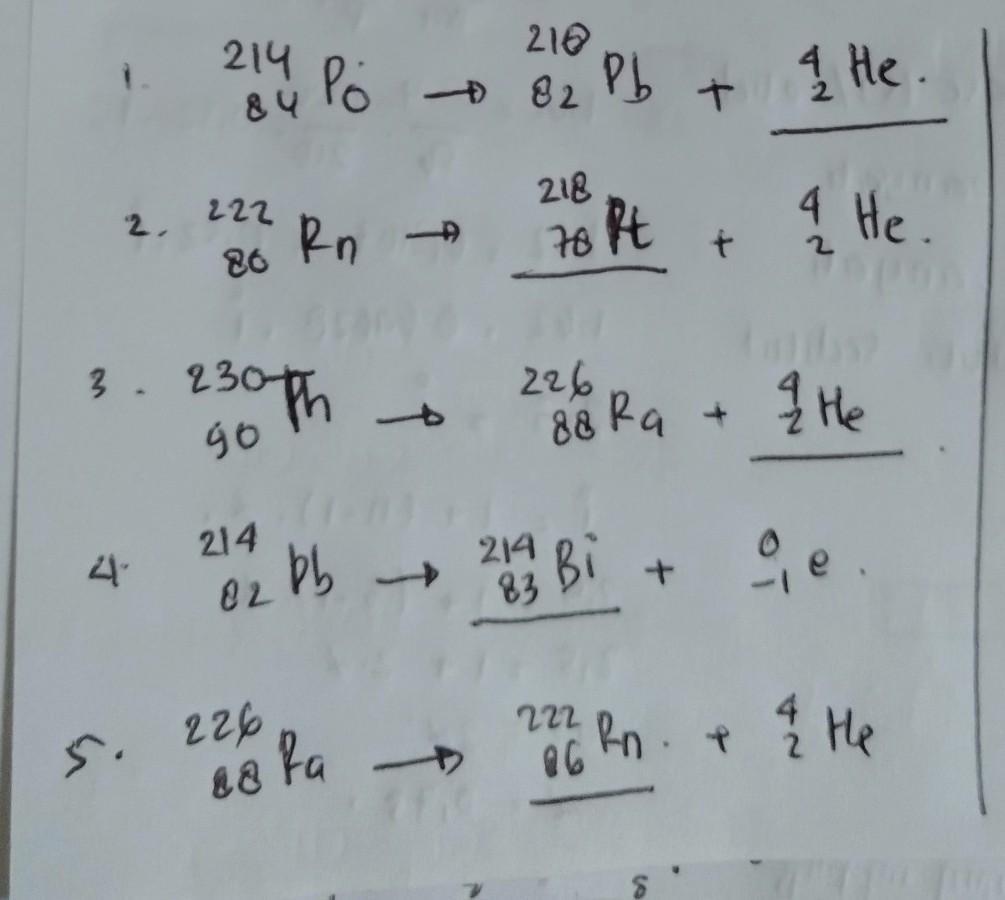 1. ²¹⁴₈₄Po → ²¹⁰₈₂Pb + ⁴₂He.
2. ²²²₈₆Rn → ²¹⁸₇₈Pt + ⁴₂He.
3. ²³⁰₉₀Th → ²²⁶₈₈Ra + ⁴₂He.
4. ²¹⁴₈₂Pb → ²¹⁴₈₃Bi + ⁰₋₁e.
5. ²²⁶₈₈Ra → ²²²₈₆Rn. + ⁴₂He